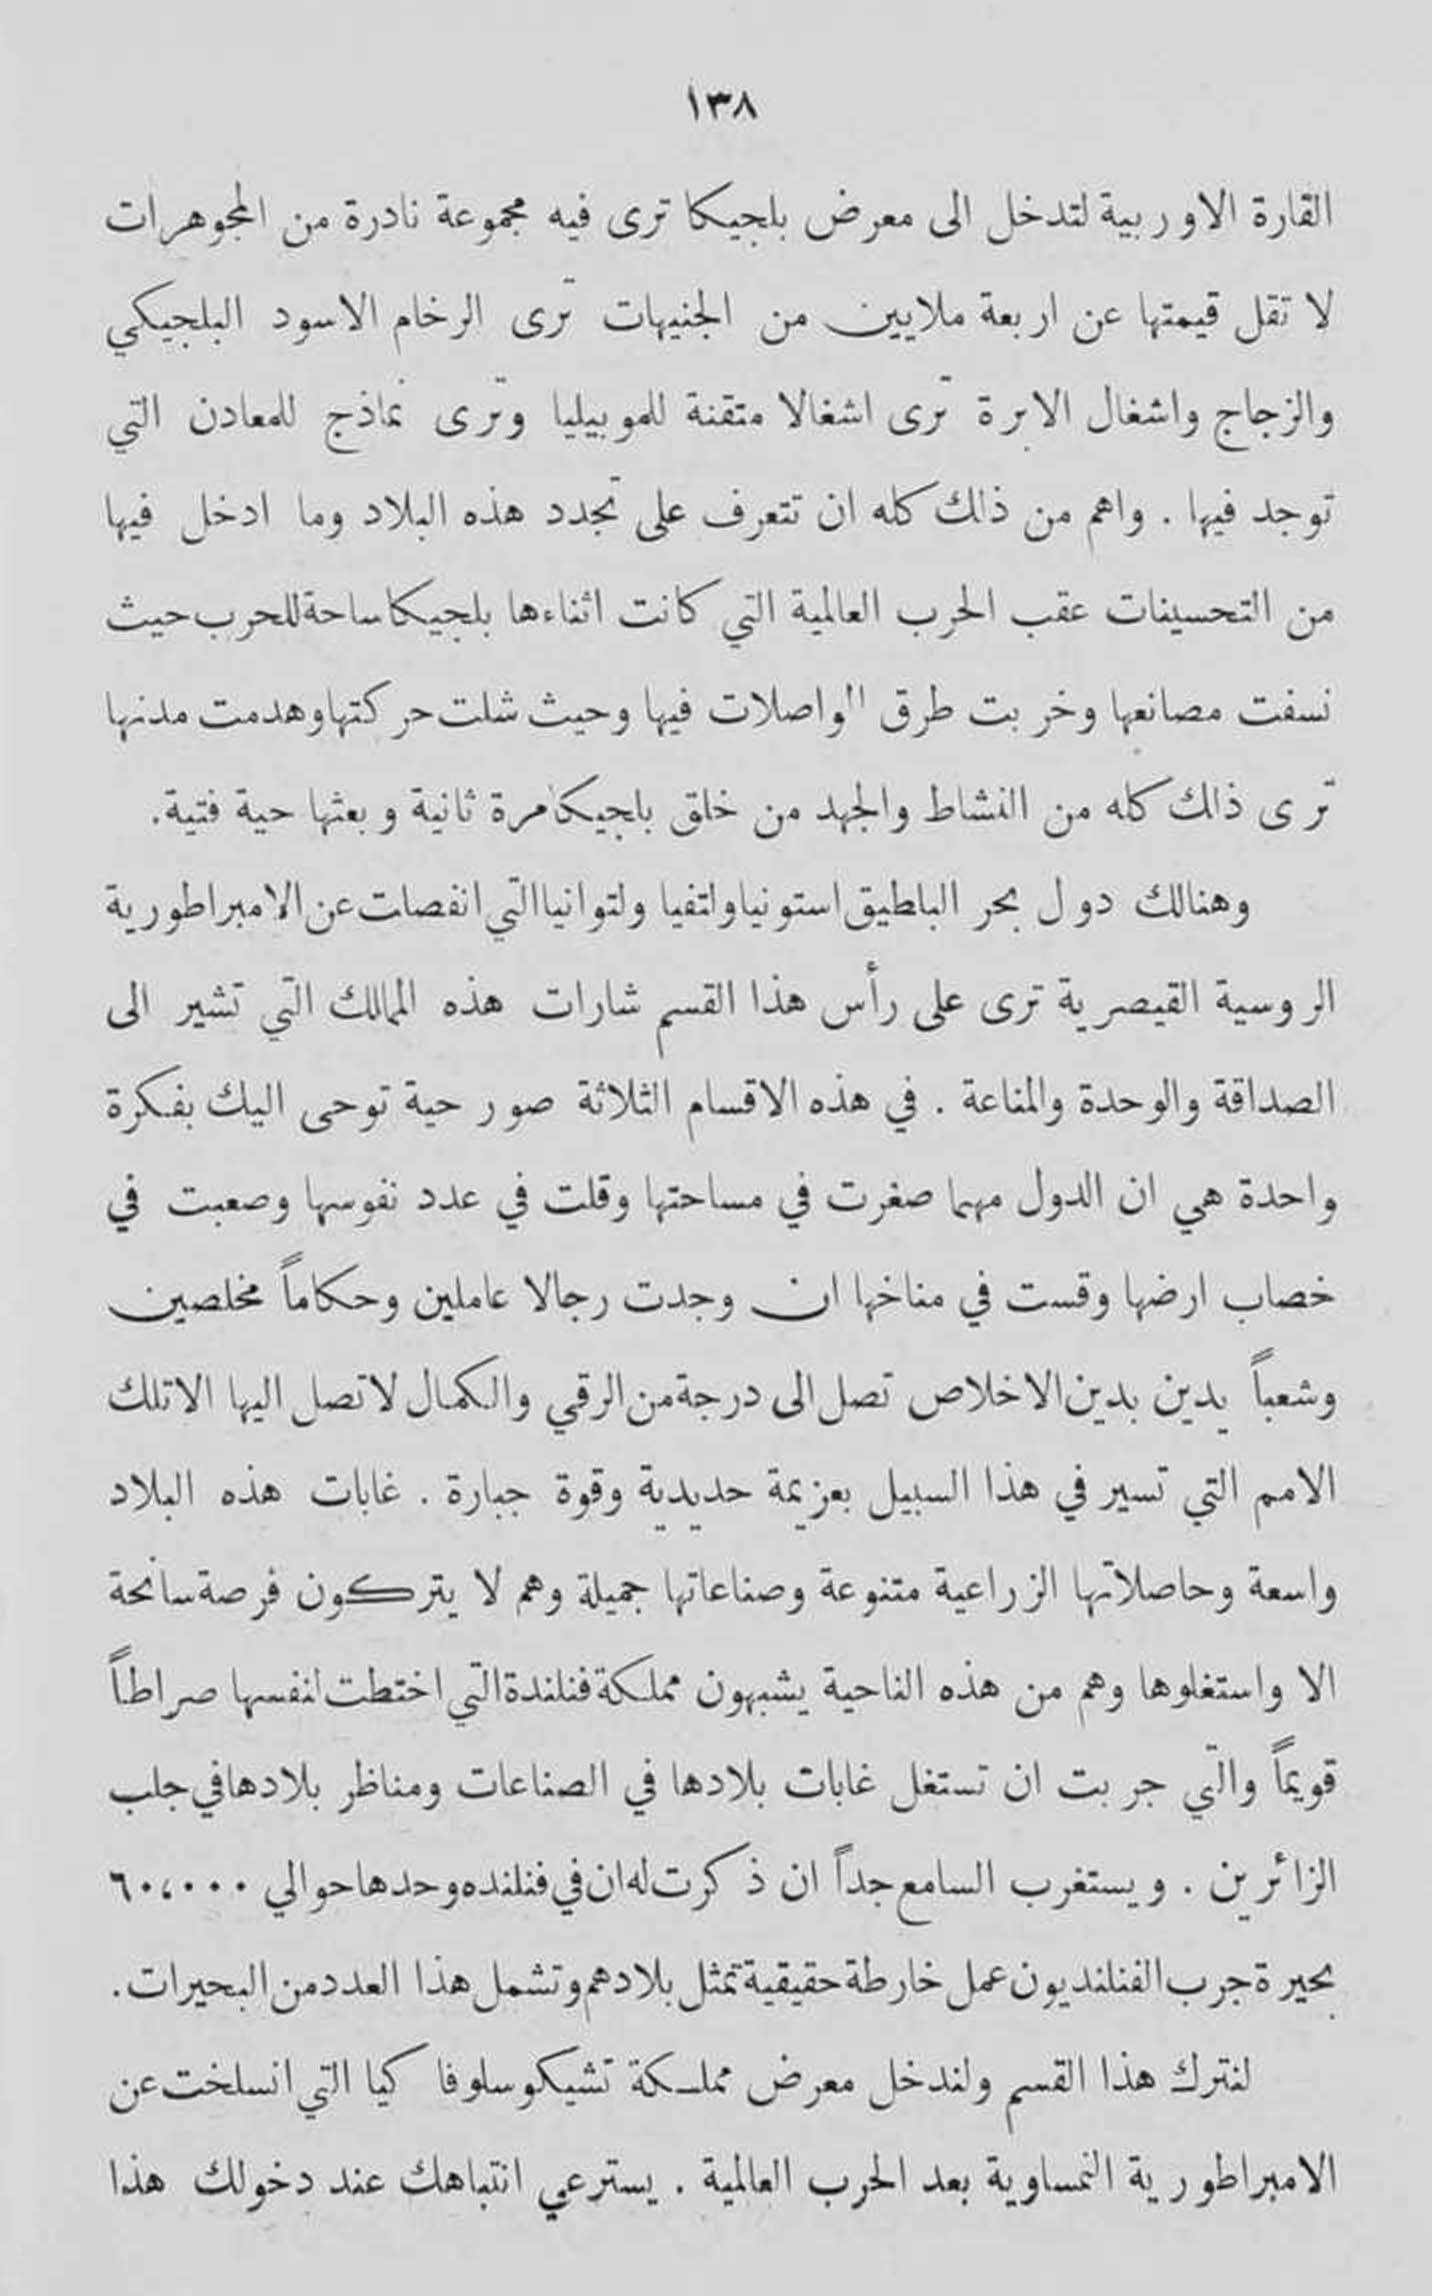 ١٣٨
القارة الاوربية لتدخل الى معرض بلجيكا ترى فيه مجموعة نادرة من المجوهرات
لا تقل قيمتها عن اربعة ملايين من الجنيهات ترى الرخام الاسود البلجيكي
والزجاج واشغال الابرة ترى اشغالا متقنة للموبيليا وترى نماذج للمعادن التي
توجد فيها . واهم من ذلك كله ان تتعرف على تجدد هذه البلاد وما ادخل فيها
من التحسينات عقب الحرب العالمية التي كانت اثناءها بلجيكا ساحة للحرب حيث
نسفت مصانعها وخربت طرق المواصلات فيها وحيث شلت حركتها وهدمت مدنها
ترى ذلك كله من النشاط والجهد من خلق بلجيكا مرة ثانية وبعثها حية فتية .
وهنالك دول بحر الباطيق استونيا ولتفيا ولتوانيا التي انفصلت عن الامبراطورية
الروسية القيصرية ترى على رأس هذا القسم شارات هذه الممالك التي تشير الى
الصداقة والوحدة والمناعة . في هذه الاقسام الثلاثة صور حية توحى اليك بفكرة
واحدة هي ان الدول مهما صغرت في مساحتها وقلت في عدد نفوسها وصعبت في
خصاب ارضها وقست في مناخها ان وجدت رجالا عاملين وحكاماً مخلصين
وشعباً يدين بدين الاخلاص تصل الى درجة من الرقي والكمال لا تصل اليها الا تلك
الامم التي تسير في هذا السبيل بعزيمة حديدية وقوة جبارة . غابات هذه البلاد
واسعة وحاصلاتها الزراعية متنوعة وصناعاتها جميلة وهم لا يتركون فرصة سانحة
الا واستغلوها وهم من هذه الناحية يشبهون مملكة فنلندة التي اختطت لنفسها صراطاً
قويماً والتي جربت ان تستغل غابات بلادها في الصناعات ومناظر بلادها في جلب
الزائرين . ويستغرب السامع جداً ان ذكرت له ان في فنلنده وحدها حوالي ٦٠،٠٠٠
بحيرة جرب الفنلنديون عمل خارطة حقيقية تمثل بلادهم وتشمل هذا العدد من البحيرات .
لنترك هذا القسم ولندخل معرض مملكة تشيكوسلوفاكيا التي انسلخت عن
الامبراطورية النمساوية بعد الحرب العالمية . يسترعي انتباهك عند دخولك هذا